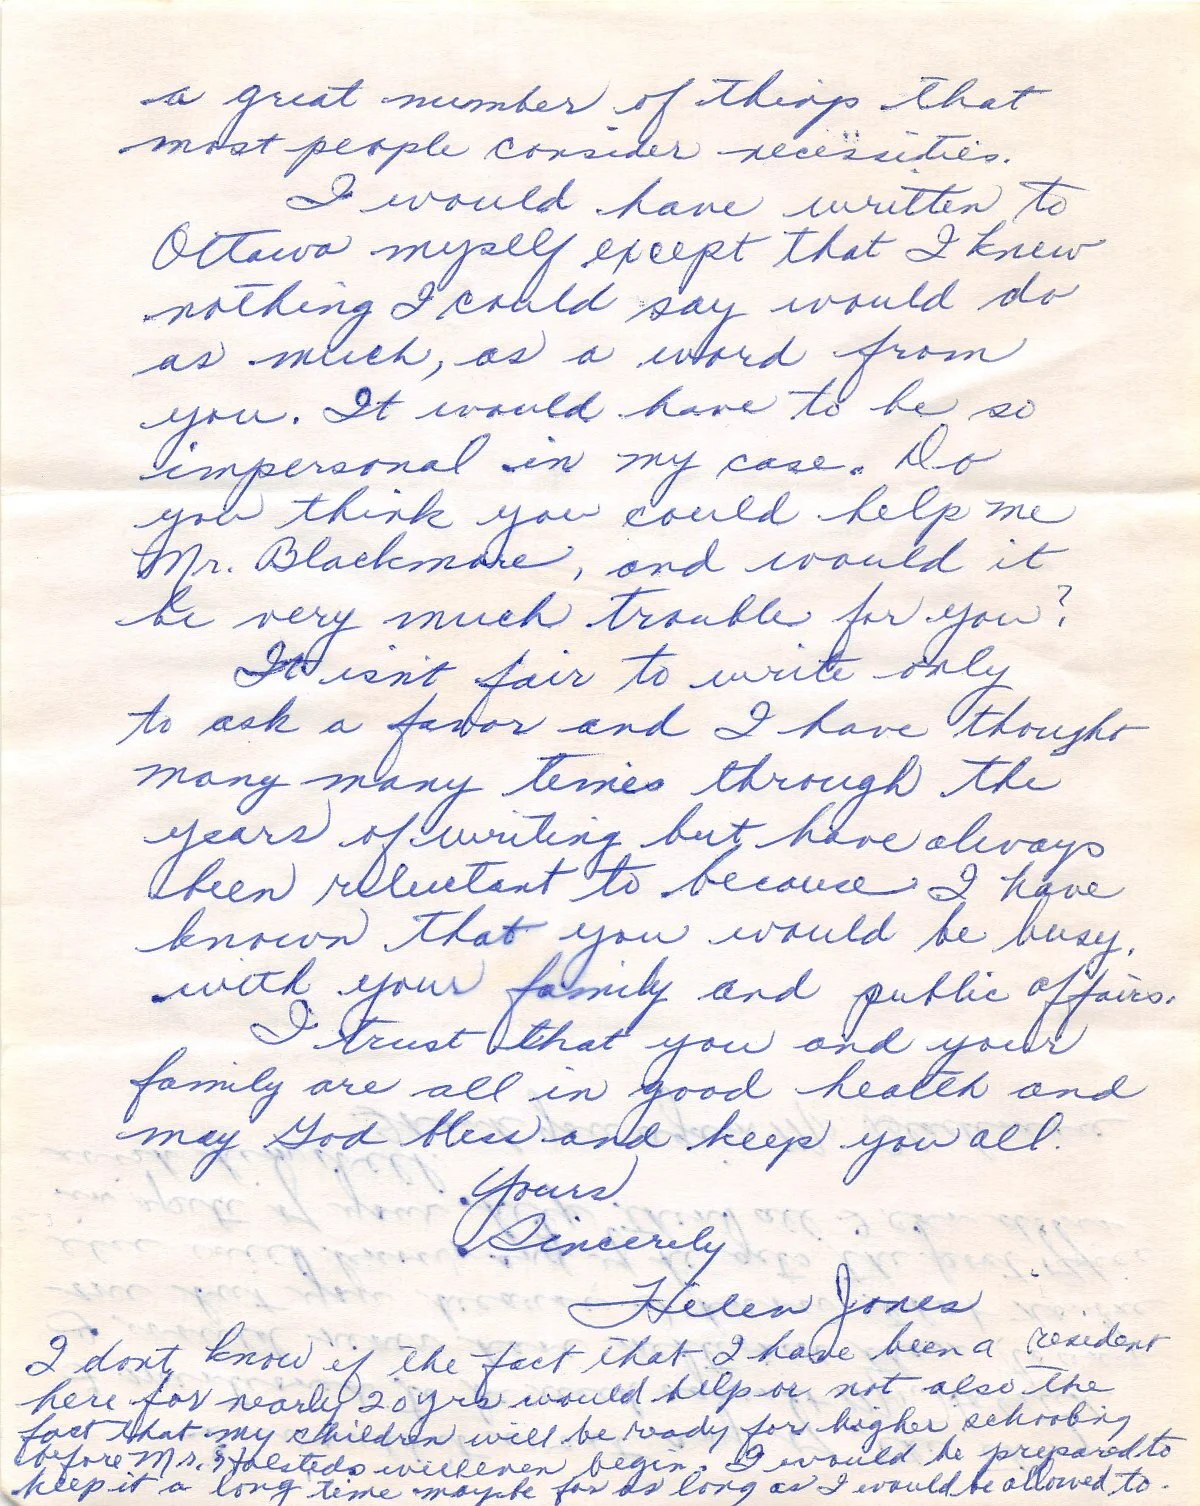 a great number of things that
most people consider necessities.
I would have written to
Ottawa myself except that I knew
nothing I could say would do
as much, as a word from
you. It would have to be so
impersonal in my case. Do
you think you could help me
Mr. Blackmore, and would it
be very much trouble for you?
It isn't fair to write only
to ask a favor and I have thought
many many times through the
years of writing but have always
been reluctant to because I have
known that you would be busy,
with your family and public affairs.
I trust that you and your
family are all in good health and
may God bless and keep you all.
Yours
Sincerely
Helen Jones
I dont know if the fact that I have been a resident
here for nearly 20 yrs would help or not also the
fact that my children will be ready for higher schooling
before Mr. Halsteds will even begin. I would be prepared to
keep it a long time maybe for as long as I would be allowed to.